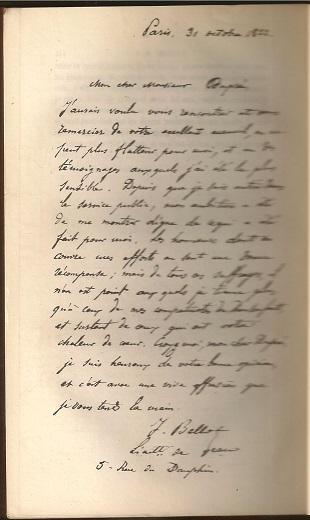 Paris, 31 octobre 18
Mon cher Monsieur Dupré
J'aurais voulu vous rencontrer et vous
remercier de votre excellent accueil, on ne
peut plus flatteur pour moi, et un des
témoignages auxquels j'ai été le plus
sensible. Depuis que je suis entré dans
le service public, mon ambition a été
de me montrer digne de ce qui a été
fait pour moi. Les honneurs dont on
couvre mes efforts en sont une bonne
récompense; mais de tous ces suffrages, il
n'en est point auxquels je tienne plus
qu'à ceux de mes compatriotes de Rochefort
et surtout de ceux qui ont votre
chaleur de cœur. Croyez moi, mon cher Dupré,
je suis heureux de votre bonne opinion,
et c'est avec une vive effusion que
je vous tends la main.
J. Bellot
Lieutt. de
5 - Rue du Dauphin.